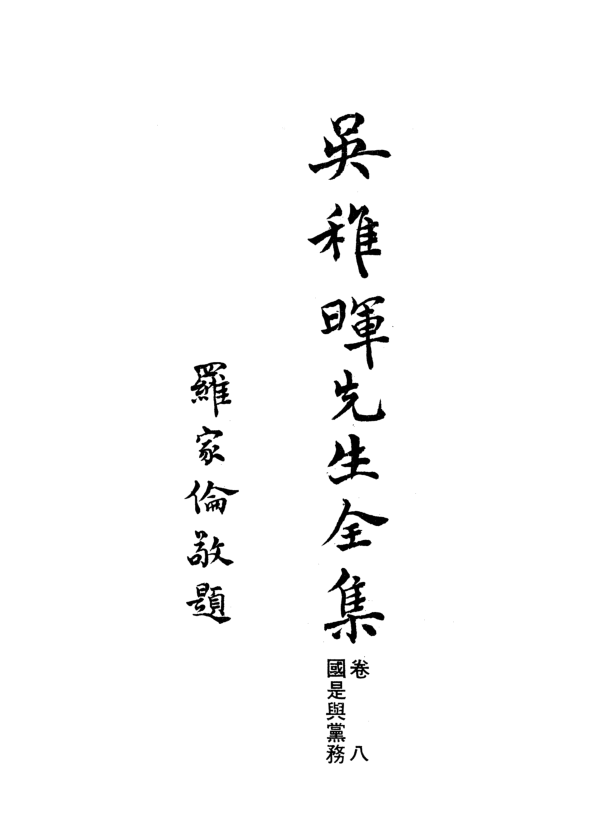 吳稚暉先生全集
卷八
國是與黨務
羅家倫敬題